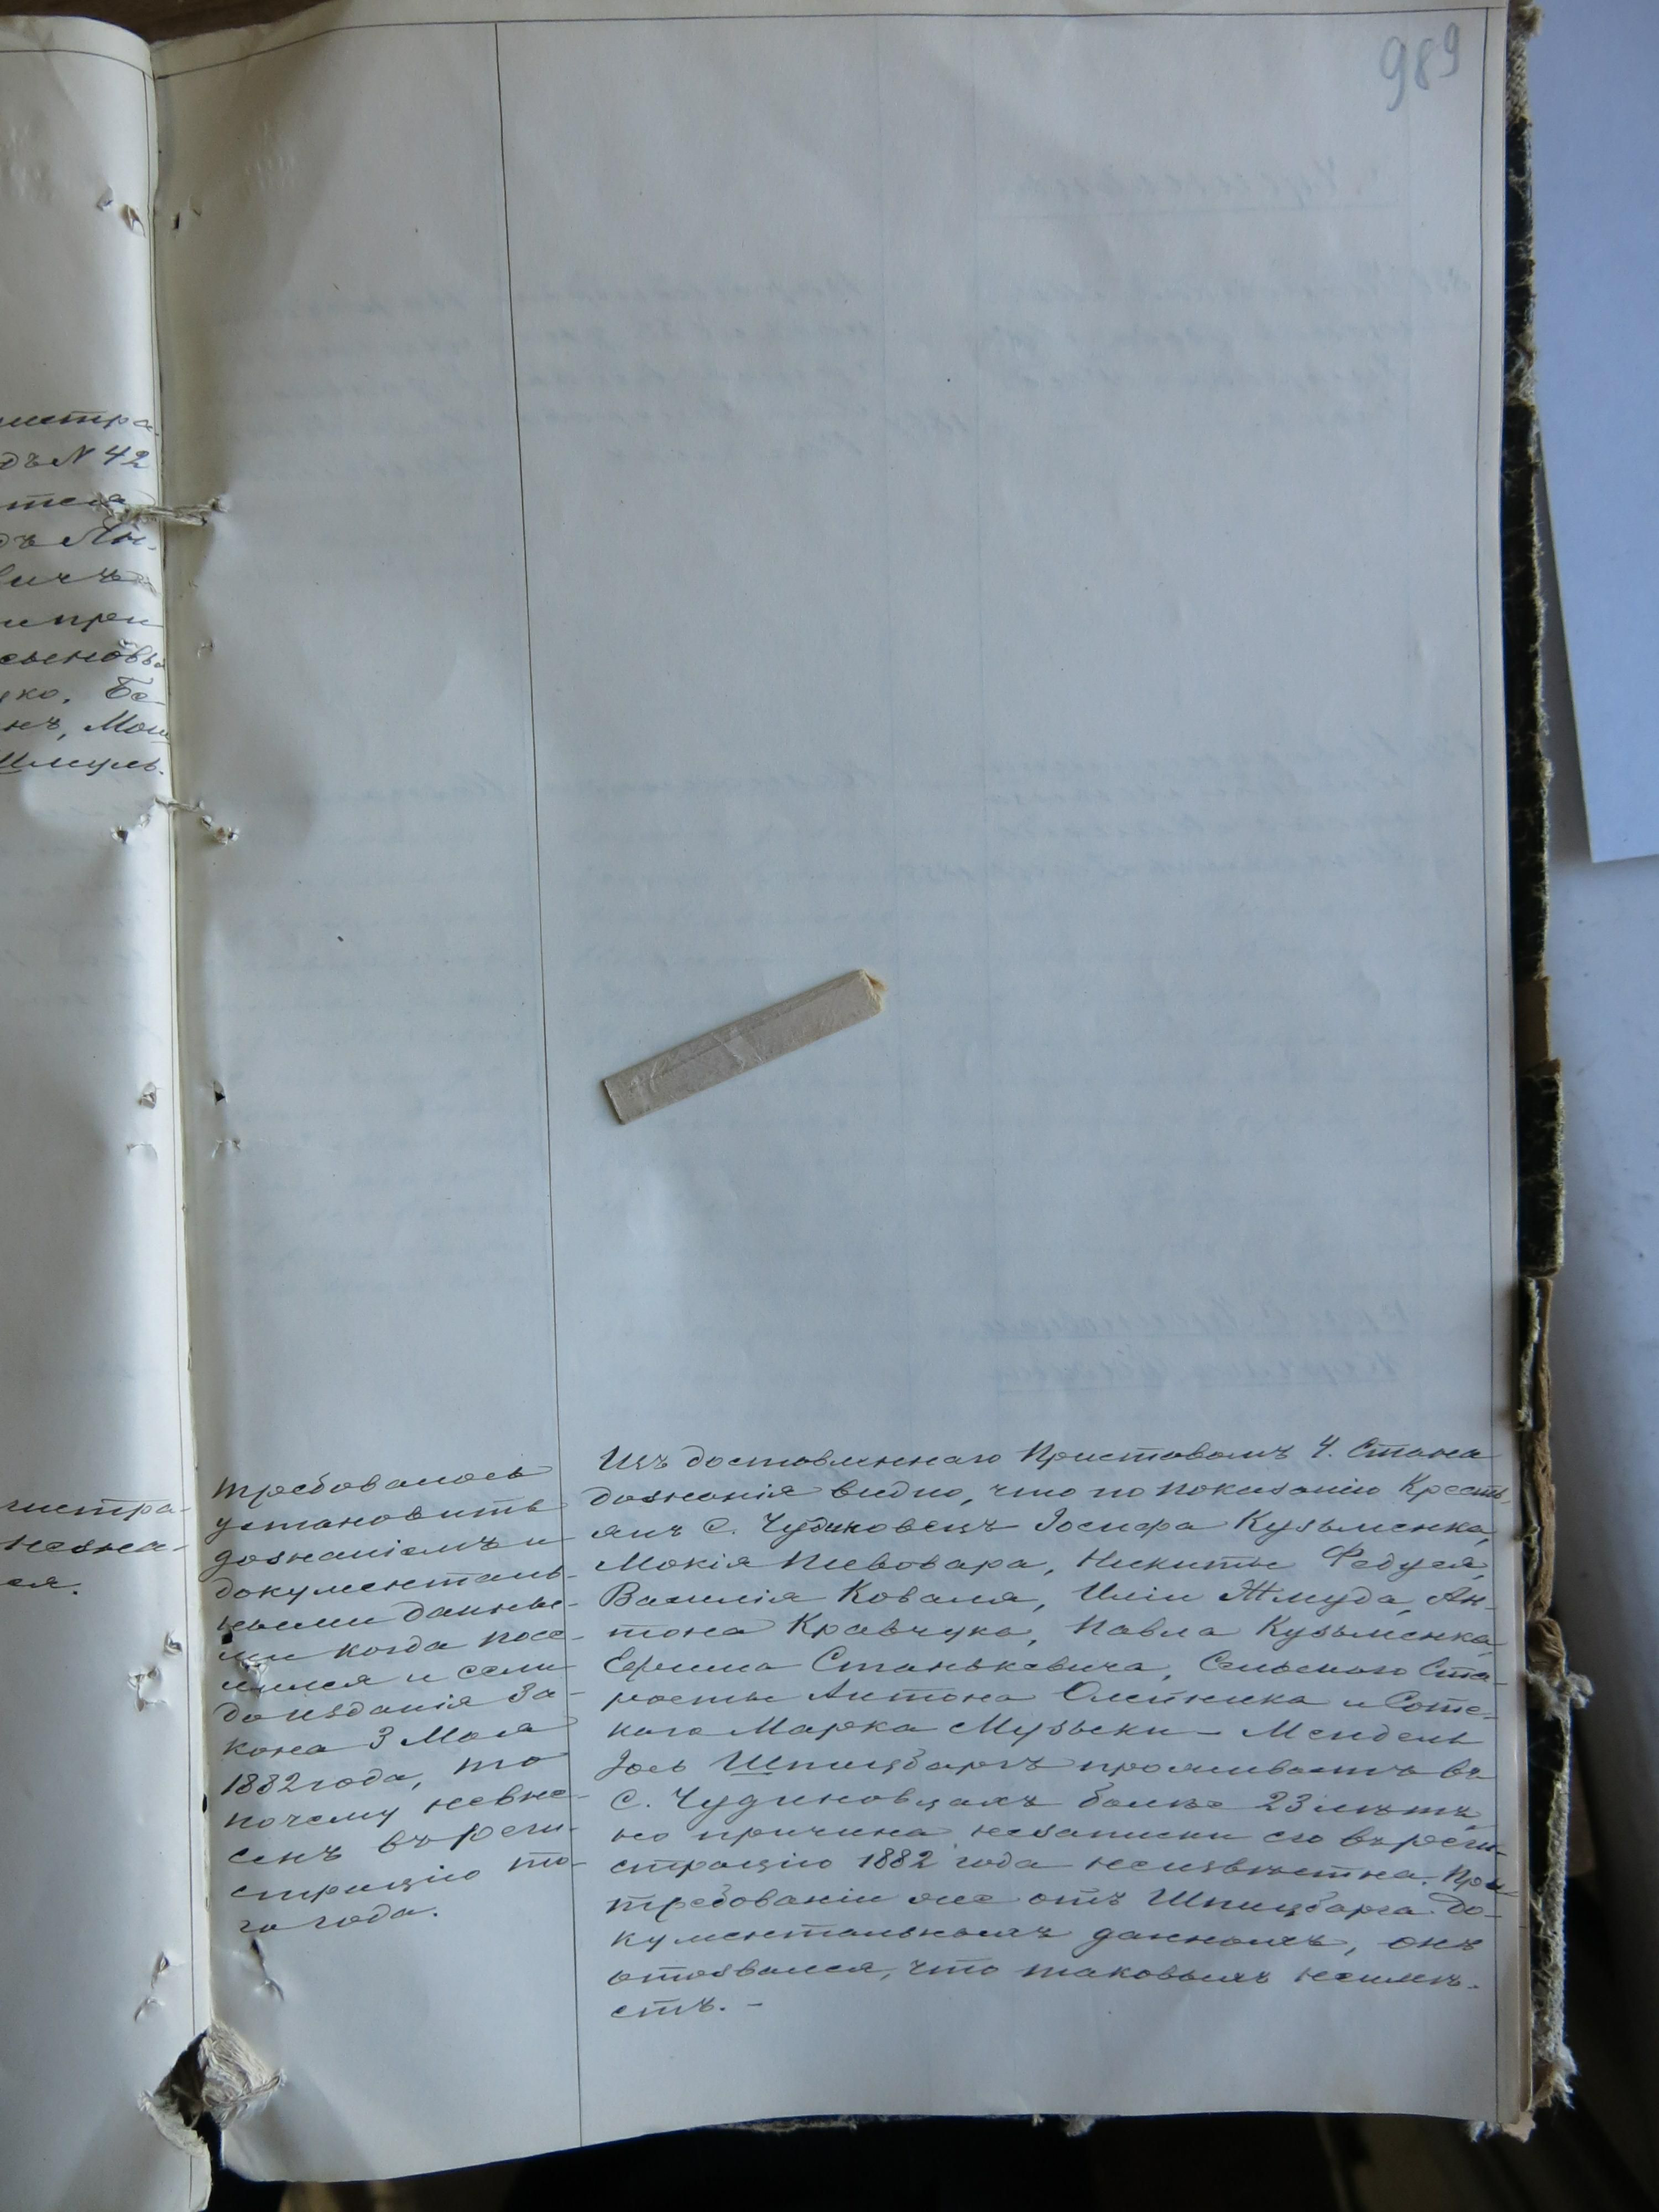 989
истра-
дъ N 42
дъ Ян-
вичъ
и при
сыновья
ко, Бе-
нъ, Мош
Шмуль.
гистра-
незна-
ся.
Требовалось
установить
дознаніемъ и
документаль-
ными данны-
ми когда посе-
лился и если
до изданія За-
кона 3 Мая
1882 года, то
почему невне-
сенъ въ реги-
страцію то-
го года.
Изъ доставленнаго Приставомъ 4. Стана
дознанія видно, что по показанію Кресть-
янъ с. Чудиновецъ Іосифа Кузьменка,
Мокія Пивовара, Никиты Федуся,
Василія Коваля, Иліи Жмуда, Ан-
тона Кравчука, Павла Кузьменка,
Ефима Станькевича, Сельскаго Ста-
росты Антона Олейника и Сотс-
каго Марка Музыки – Мендель
Іось Шпицбаргъ проживаетъ въ
с. Чудиновцахъ болѣе 23 лѣтъ,
но причина незаписки его въ реги-
страцію 1882 года неизвѣстна. При
требованіи же отъ Шпицбарга До-
кументальныхъ данныхъ, онъ
отозвался, что таковыхъ неимѣ-
етъ. –